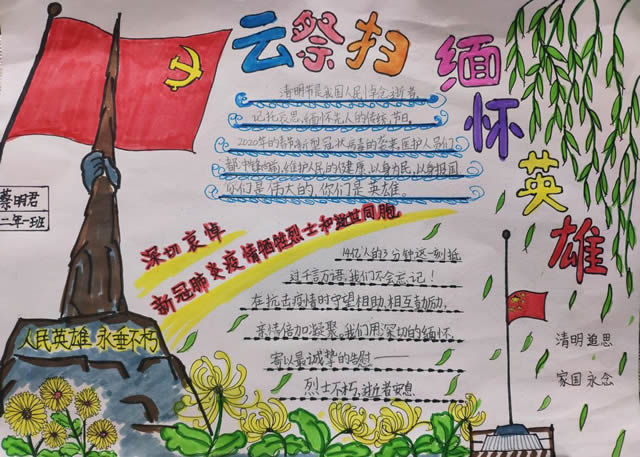 云祭扫
缅怀英雄
清明节是我国人民悼念逝者、
记托哀思,缅怀先人的传统节日。
2020年的春节新型冠状病毒的蔓延医护人员们
都冲锋陷阵,维护人民的健康,以身为民,以身报国
你们是伟大的,你们是英雄。
蔡明君
二年一班
深切哀悼
新冠肺炎疫情牺牲烈士和逝世同胞
14亿人的3分钟这一刻抵
过千言万语,我们不会忘记!
在抗击疫情时守望相助,相互勉励,
亲情倍加凝聚。我们用深切的缅怀,
寄以最诚挚的告慰——
烈士不朽,逝者安息
人民英雄 永垂不朽
清明追思
家国永念